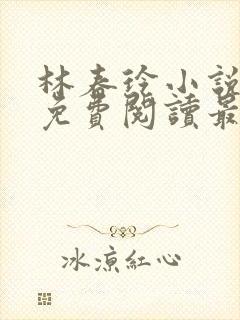 林春徐小說
免費閱讀最
冰涼紅心